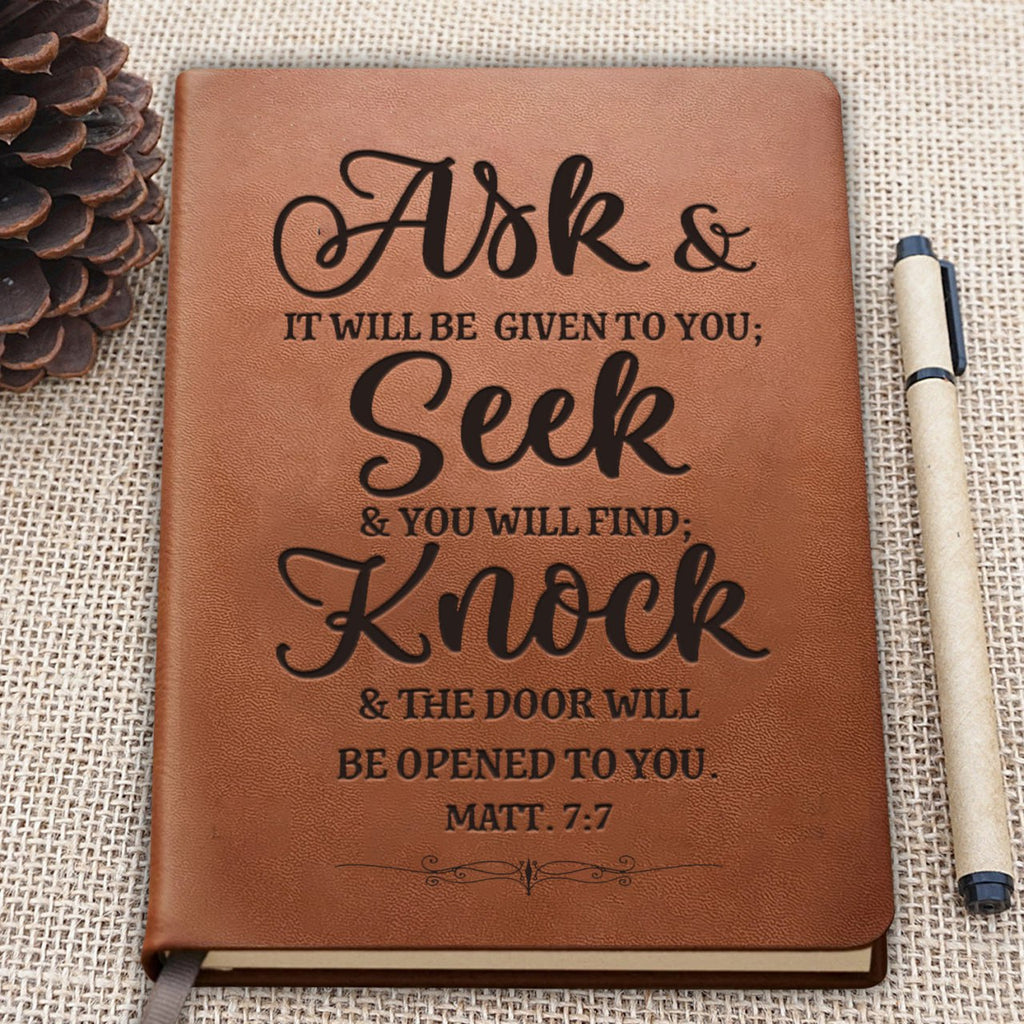 Ask &
IT WILL BE GIVEN TO YOU;
Seek
& YOU WILL FIND;
Knock
& THE DOOR WILL
BE OPENED TO YOU.
MATT. 7:7